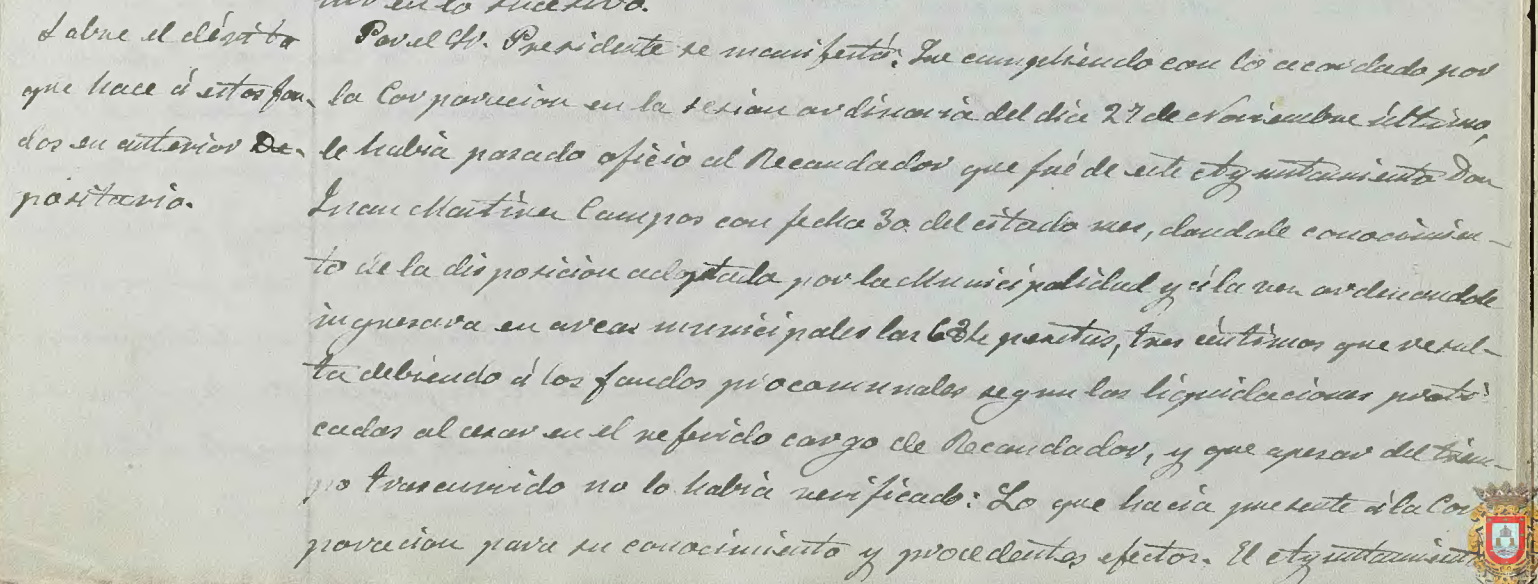 en lo sucesivo.
Sobre el débito
que hace á estos fon-
dos en anterior De-
positario.
Por el Sr. Presidente se manifestó: Que cumpliendo con lo acordado por
la Corporacion en la sesion ordinaria del dia 27 de Noviembre último,
le habia pasado oficio al Recaudador que fué de este Ayuntamiento Don
Juan Martinez Campos con fecha 30 del citado mes, dandole conocimien-
to de la disposicion adoptada por la Municipalidad y á la vez ordenandole
ingresara en arcas municipales las pesetas, tres céntimos que resul-
ta debiendo á los fondos procomunales segun las liquidaciones practi-
cadas al cesar en el referido cargo de Recaudador, y que apesar del tiem-
po trascurrido no lo habia verificado: Lo que hacia presente á la Cor
poracion para su conocimiento y procedentes efectos. El Ayuntamiento